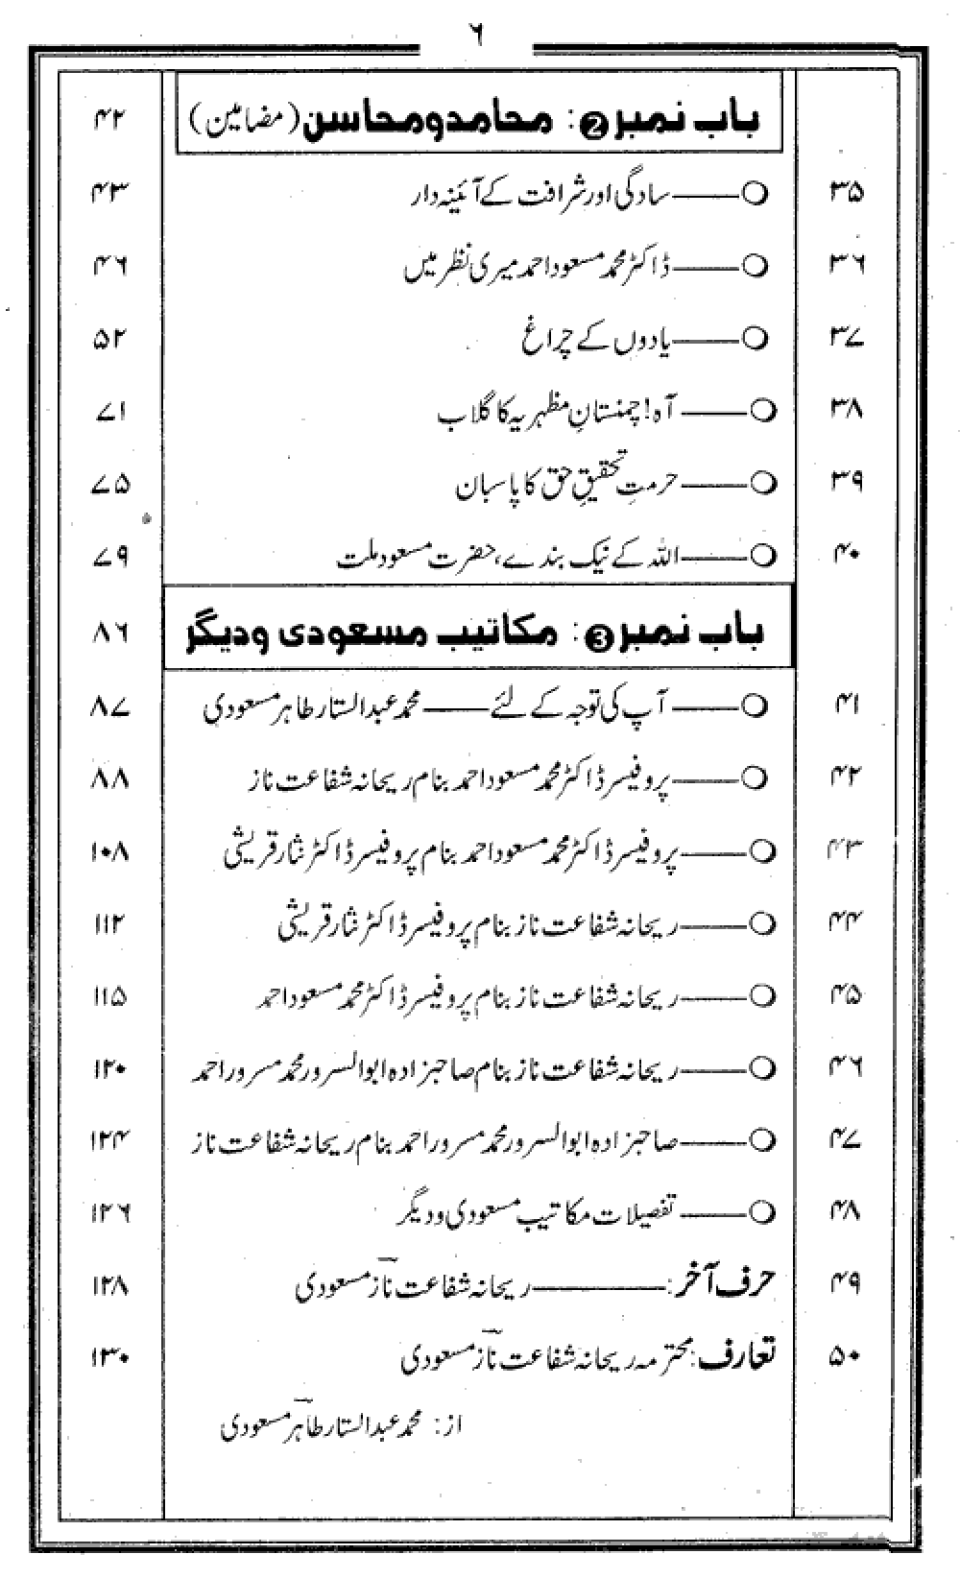 ۶
باب نمبر 2: محامد و محاسن (مضامین) ۴۲
۳۵ سادگی اور شرافت کے آئینہ دار ۴۳
۳۶ ڈاکٹر محمد مسعود احمد میری نظر میں ۴۶
۳۷ یادوں کے چراغ ۵۲
۳۸ آہ! چمنستانِ مظہریہ کا گلاب ۷۱
۳۹ حرمتِ تحقیقِ حق کا پاسبان ۷۵
۴۰ اللہ کے نیک بندے، حضرت مسعود ملت ۷۹
باب نمبر 3: مکاتیب مسعودی و دیگر ۸۶
۴۱ آپ کی توجہ کے لئے —— محمد عبدالستار طاہر مسعودی ۸۷
۴۲ پروفیسر ڈاکٹر محمد مسعود احمد بنام ریحانہ شفاعت ناز ۸۸
۴۳ پروفیسر ڈاکٹر محمد مسعود احمد بنام پروفیسر ڈاکٹر نثار قریشی ۱۰۸
۴۴ ریحانہ شفاعت ناز بنام پروفیسر ڈاکٹر نثار قریشی ۱۱۲
۴۵ ریحانہ شفاعت ناز بنام پروفیسر ڈاکٹر محمد مسعود احمد ۱۱۵
۴۶ ریحانہ شفاعت ناز بنام صاحبزادہ ابوالسرور محمد مسرور احمد ۱۲۰
۴۷ صاحبزادہ ابوالسرور محمد مسرور احمد بنام ریحانہ شفاعت ناز ۱۲۴
۴۸ تفصیلات مکاتیب مسعودی و دیگر ۱۲۶
۴۹ حرف آخر: —— ریحانہ شفاعت ناز مسعودی ۱۲۸
۵۰ تعارف: محترمہ ریحانہ شفاعت ناز مسعودی ۱۳۰
از: محمد عبدالستار طاہر مسعودی